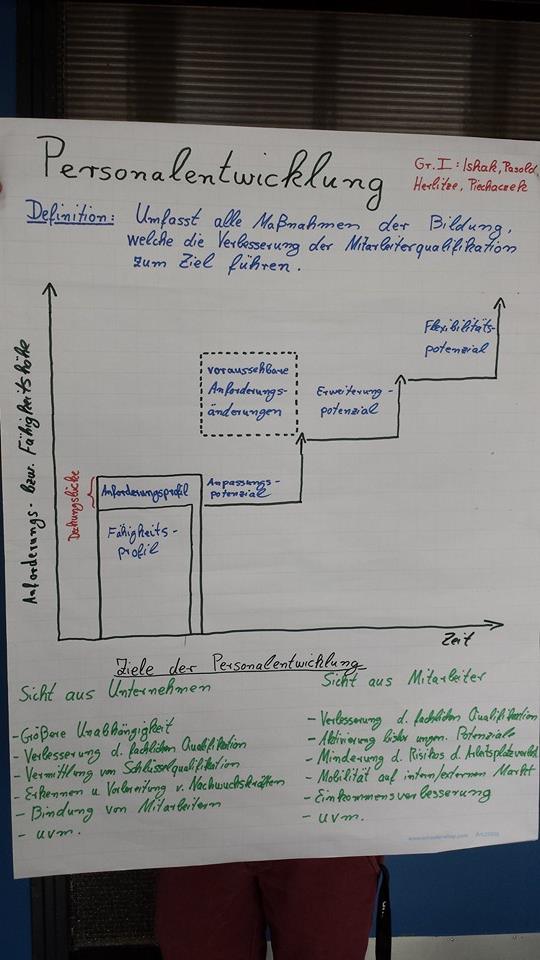 Personalentwicklung
Gr. I: Ishak, Pasold,
Herlitze, Piechaczek
Definition: Umfasst alle Maßnahmen der Bildung,
welche die Verbesserung der Mitarbeiterqualifikation
zum Ziel führen.
Anforderungs- bzw. Fähigkeitshöhe
Flexibilitäts-
potenzial
voraussehbare
Anforderungs-
änderungen
Erweiterung-
potenzial
Deckungslücke
Anforderungsprofil
Anpassungs-
potenzial
Fähigkeits-
profil
Zeit
Ziele der Personalentwicklung
Sicht aus Unternehmen
- Größere Unabhängigkeit
- Verbesserung d. fachlichen Qualifikation
- Vermittlung von Schlüsselqualifikation
- Erkennen u Vorbereitung v. Nachwuchskräften
- Bindung von Mitarbeitern
- uvm.
Sicht aus Mitarbeiter
- Verbesserung d. fachlichen Qualifikation
- Aktivierung bisher ungen. Potenziale
- Minderung d. Risikos d. Arbeitsplatzverlust
- Mobilität auf intern/externen Markt
- Einkommensverbesserung
- uvm.